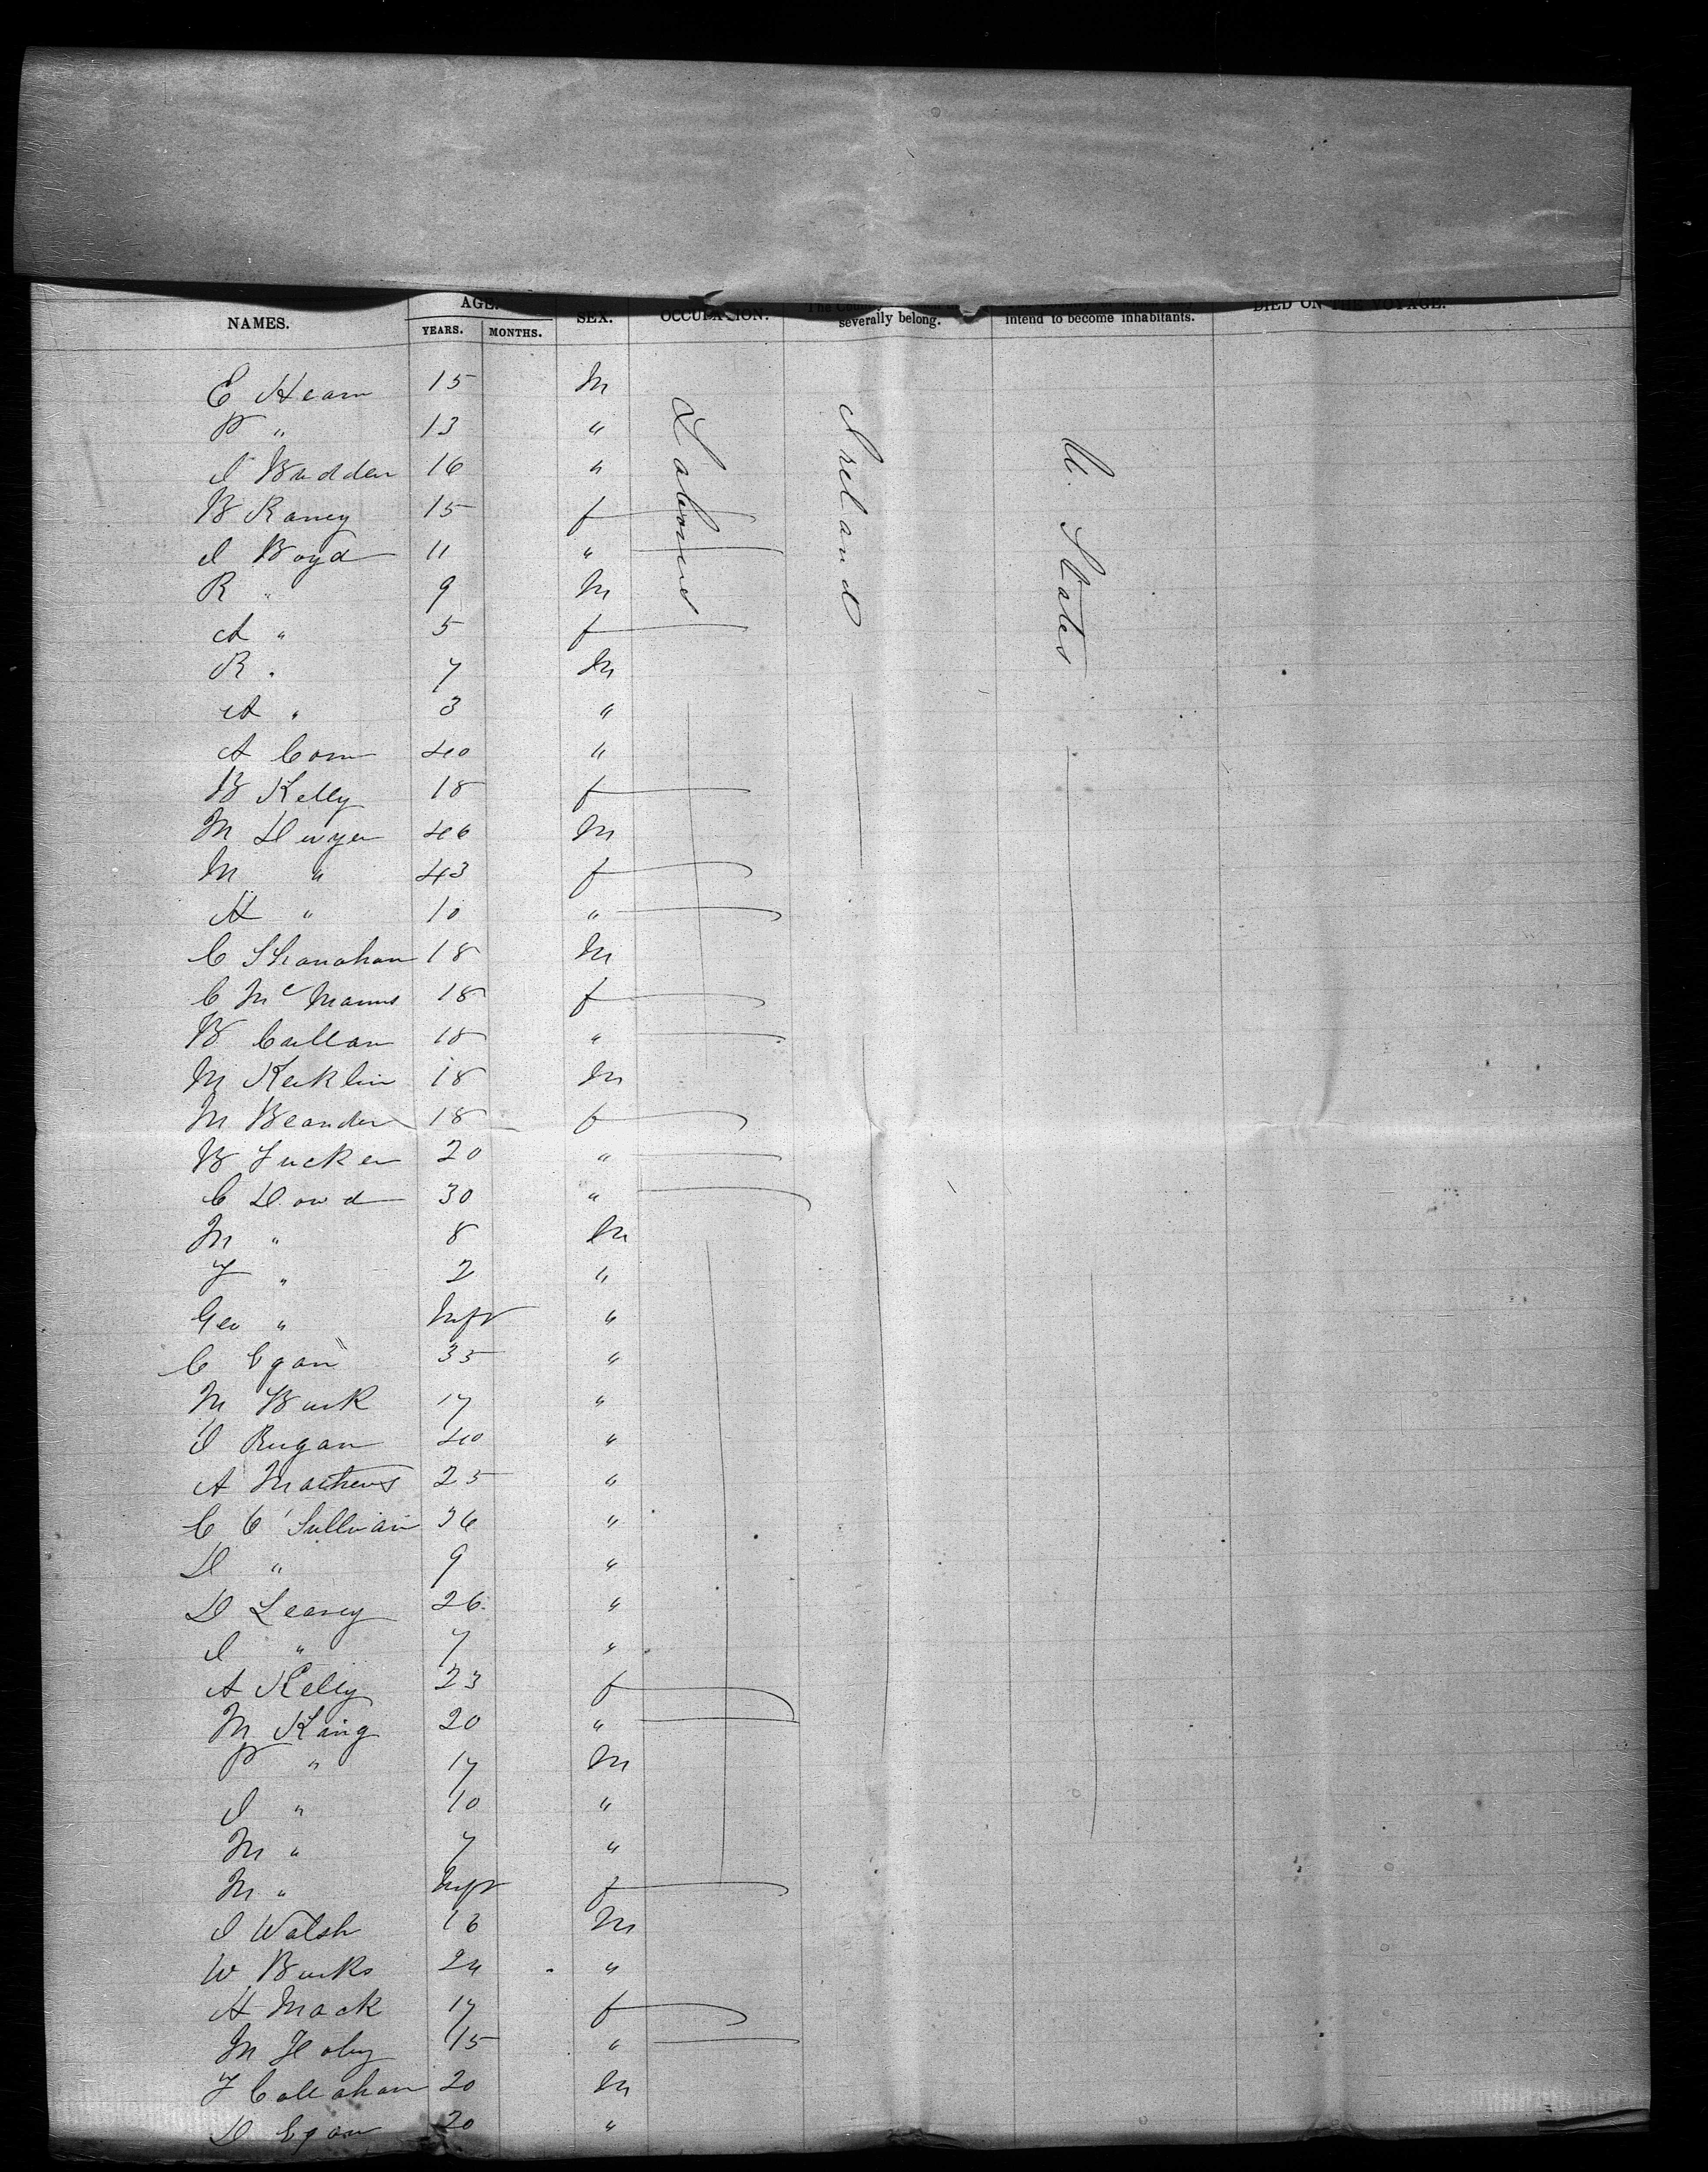 NAMES. AGE. YEARS. MONTHS. SEX. OCCUPATION. The Country severally belong. intend to become inhabitants. DIED ON THE VOYAGE.
Labourers Ireland U. States
E Hearn 15 M
P " 13 "
I Budden 16 "
B Raney 15 f
I Boyd 11 "
R " 9 M
A " 5 f
R " 7 M
A " 3 "
A Corn 40 "
B Kelly 18 f
M Dwyer 46 M
M " 43 f
H " 10 "
C Shanahan 18 M
C McManus 18 f
B Cullan 18 "
M 18 M
M 18 f
B Tucker 20 "
C Dowd 30 "
M " 8 M
T " 2 "
Geo " Inft "
C Egan 35 "
M Burk 17 "
I 40 "
A Mathews 25 "
C O'Sullivan 36 "
D " 9 "
D Leary 26 "
I " 7 "
A Kelly 23 f
M King 20 "
P " 17 M
I " 10 "
M " 7 "
M " Inft f
I Walsh 16 M
W Burks 24 "
H Mack 17 f
M 15 "
T Callahan 20 M
D Egan 20 "